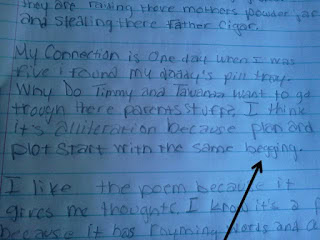 they are taking there mothers powder jar
and stealing there father cigar.
My Connection is One day when I was
five i found my daddy's pill tray.
Why Do Timmy and Tawanna want to go
trough there parents stuff? I think
it's alliteration because plan and
plot start with the same begging.
I like the poem because it
gives me thoughts. I know it's a
because it has rhyming words and a